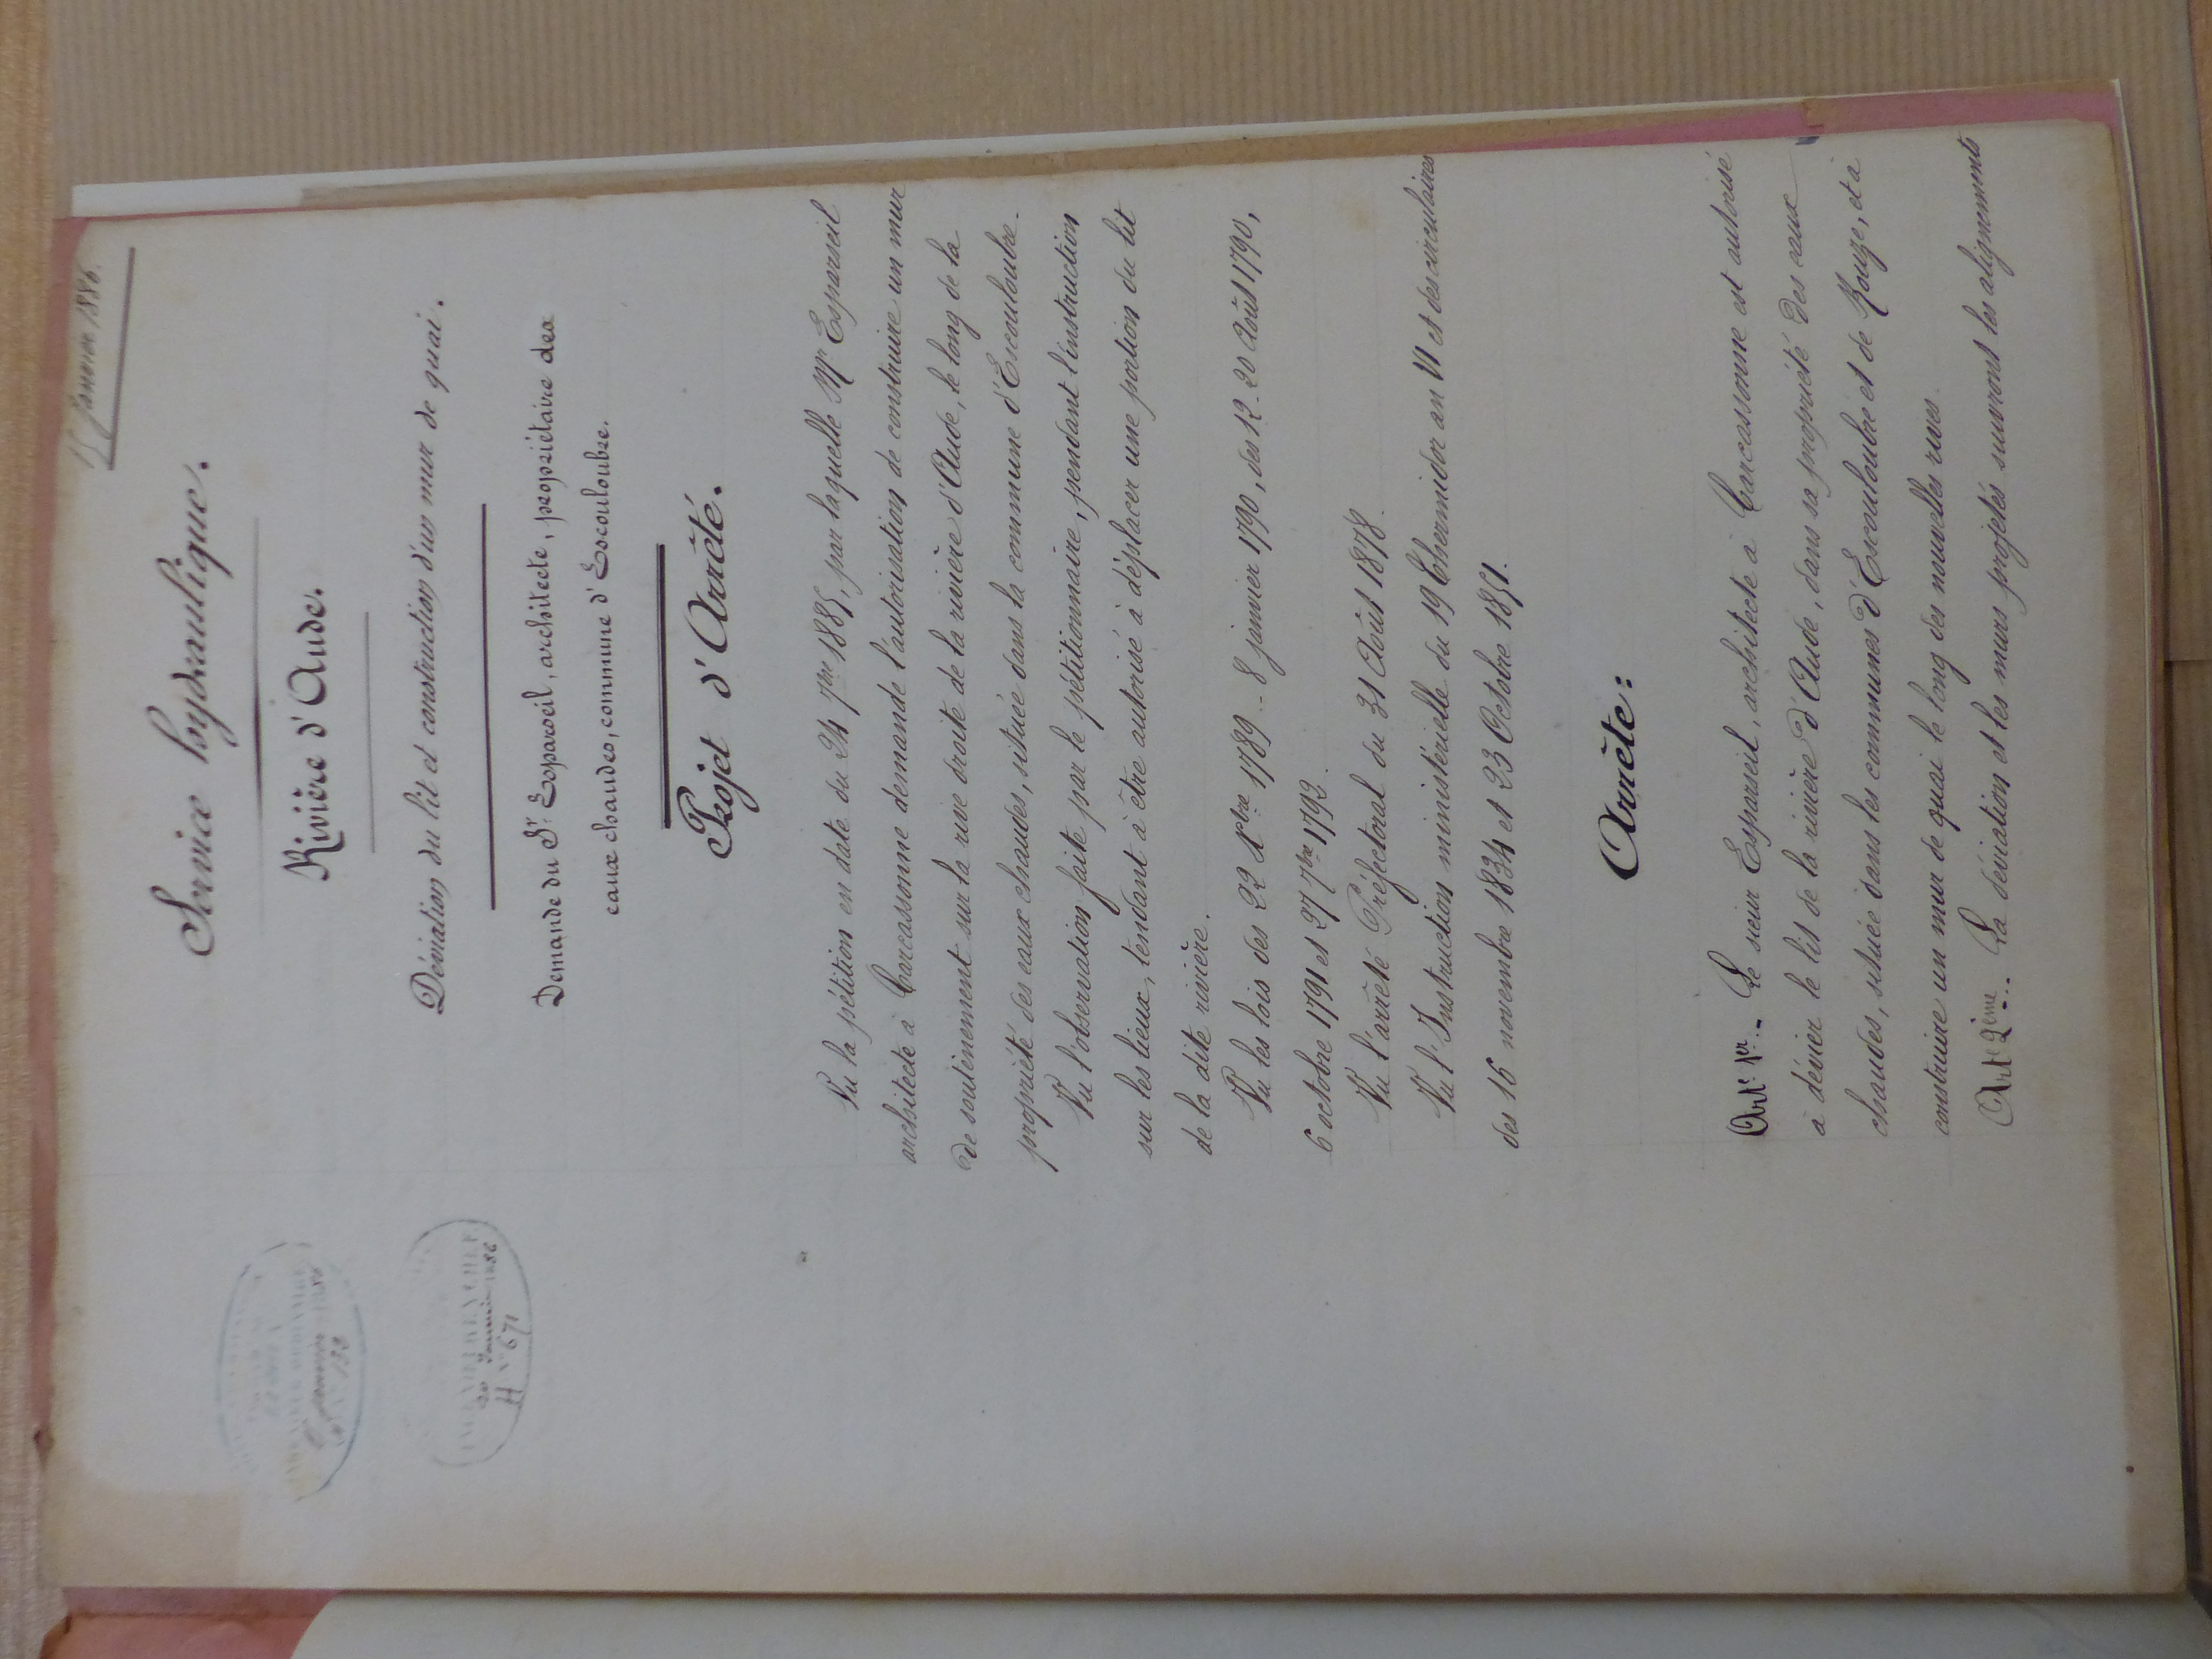 Janvier 1886.
Service hydraulique.
Rivière d'Aude.
Déviation du lit et construction d'un mur de quai.
Demande du Sr. Esparseil, architecte, propriétaire des
eaux chaudes, commune d'Escouloubre.
Projet d'Arrêté.
Vu la pétition en date du 24 7bre 1885, par laquelle Mr Esparseil
architecte à Carcassonne demande l'autorisation de construire un mur
de soutènement sur la rive droite de la rivière d'Aude, le long de la
propriété des eaux chaudes, située dans la commune d'Escouloubre.
Vu l'observation faite par le pétitionnaire, pendant l'instruction
sur les lieux, tendant à être autorisé à déplacer une portion du lit
de la dite rivière.
Vu les lois des 22 Xbre 1789 - 8 janvier 1790, des 12 - 20 Août 1790,
6 octobre 1791 et 27 7bre 1792.
Vu l'arrêté Préfectoral du 31 Août 1878.
Vu l'Instruction ministérielle du 19 Thermidor an VI et des circulaires
des 16 novembre 1834 et 23 Octobre 1851.
Arrête:
Art 1er.- Le sieur Esparseil, architecte à Carcassonne est autorisé
à dévier le lit de la rivière d'Aude, dans sa propriété des eaux
chaudes, située dans les communes d'Escouloubre et de Rouze, et à
construire un mur de quai le long des nouvelles rives.
Art 2ème.- La déviation et les murs projetés suivront les alignements
INGÉNIEUR ORDINAIRE
janvier 1886
INGÉNIEUR EN CHEF
20 Janvier 1886
H N° 671